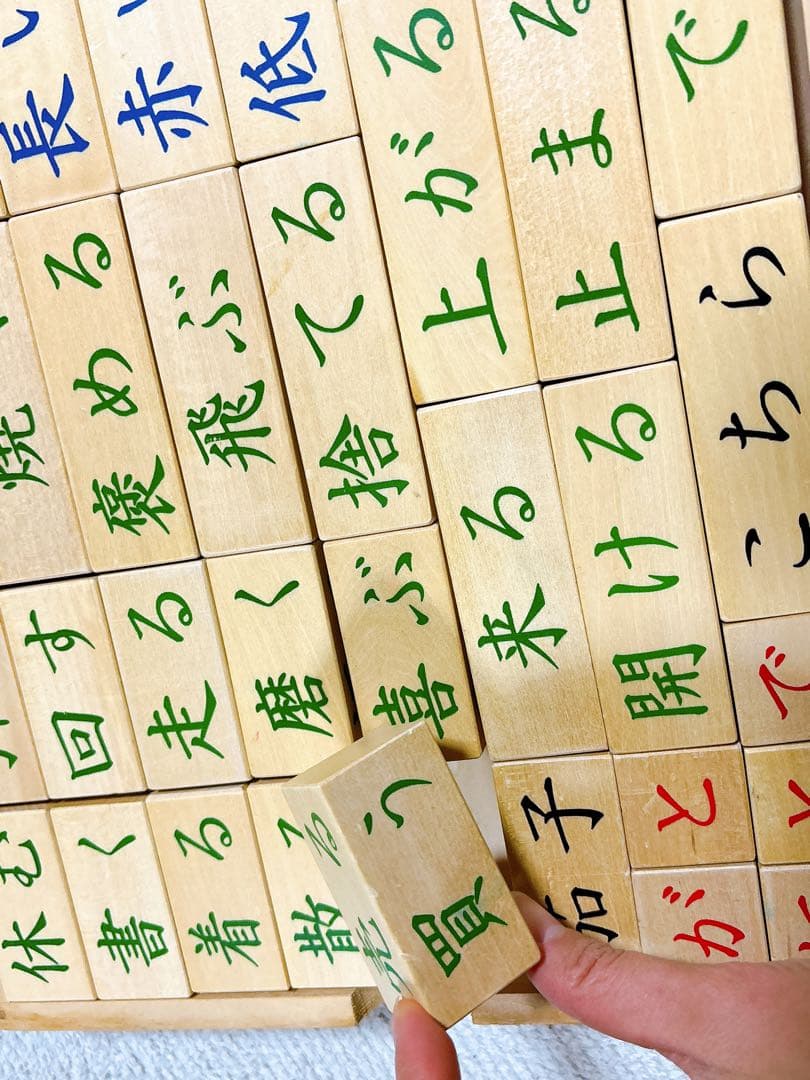 休む
焼
長
書く
回す
褒める
赤
着る
走る
飛ぶ
低
散る
磨く
捨てる
上がる
買う
喜ぶ
来る
止まる
茄子
開ける
が
と
で
こちら
で
と